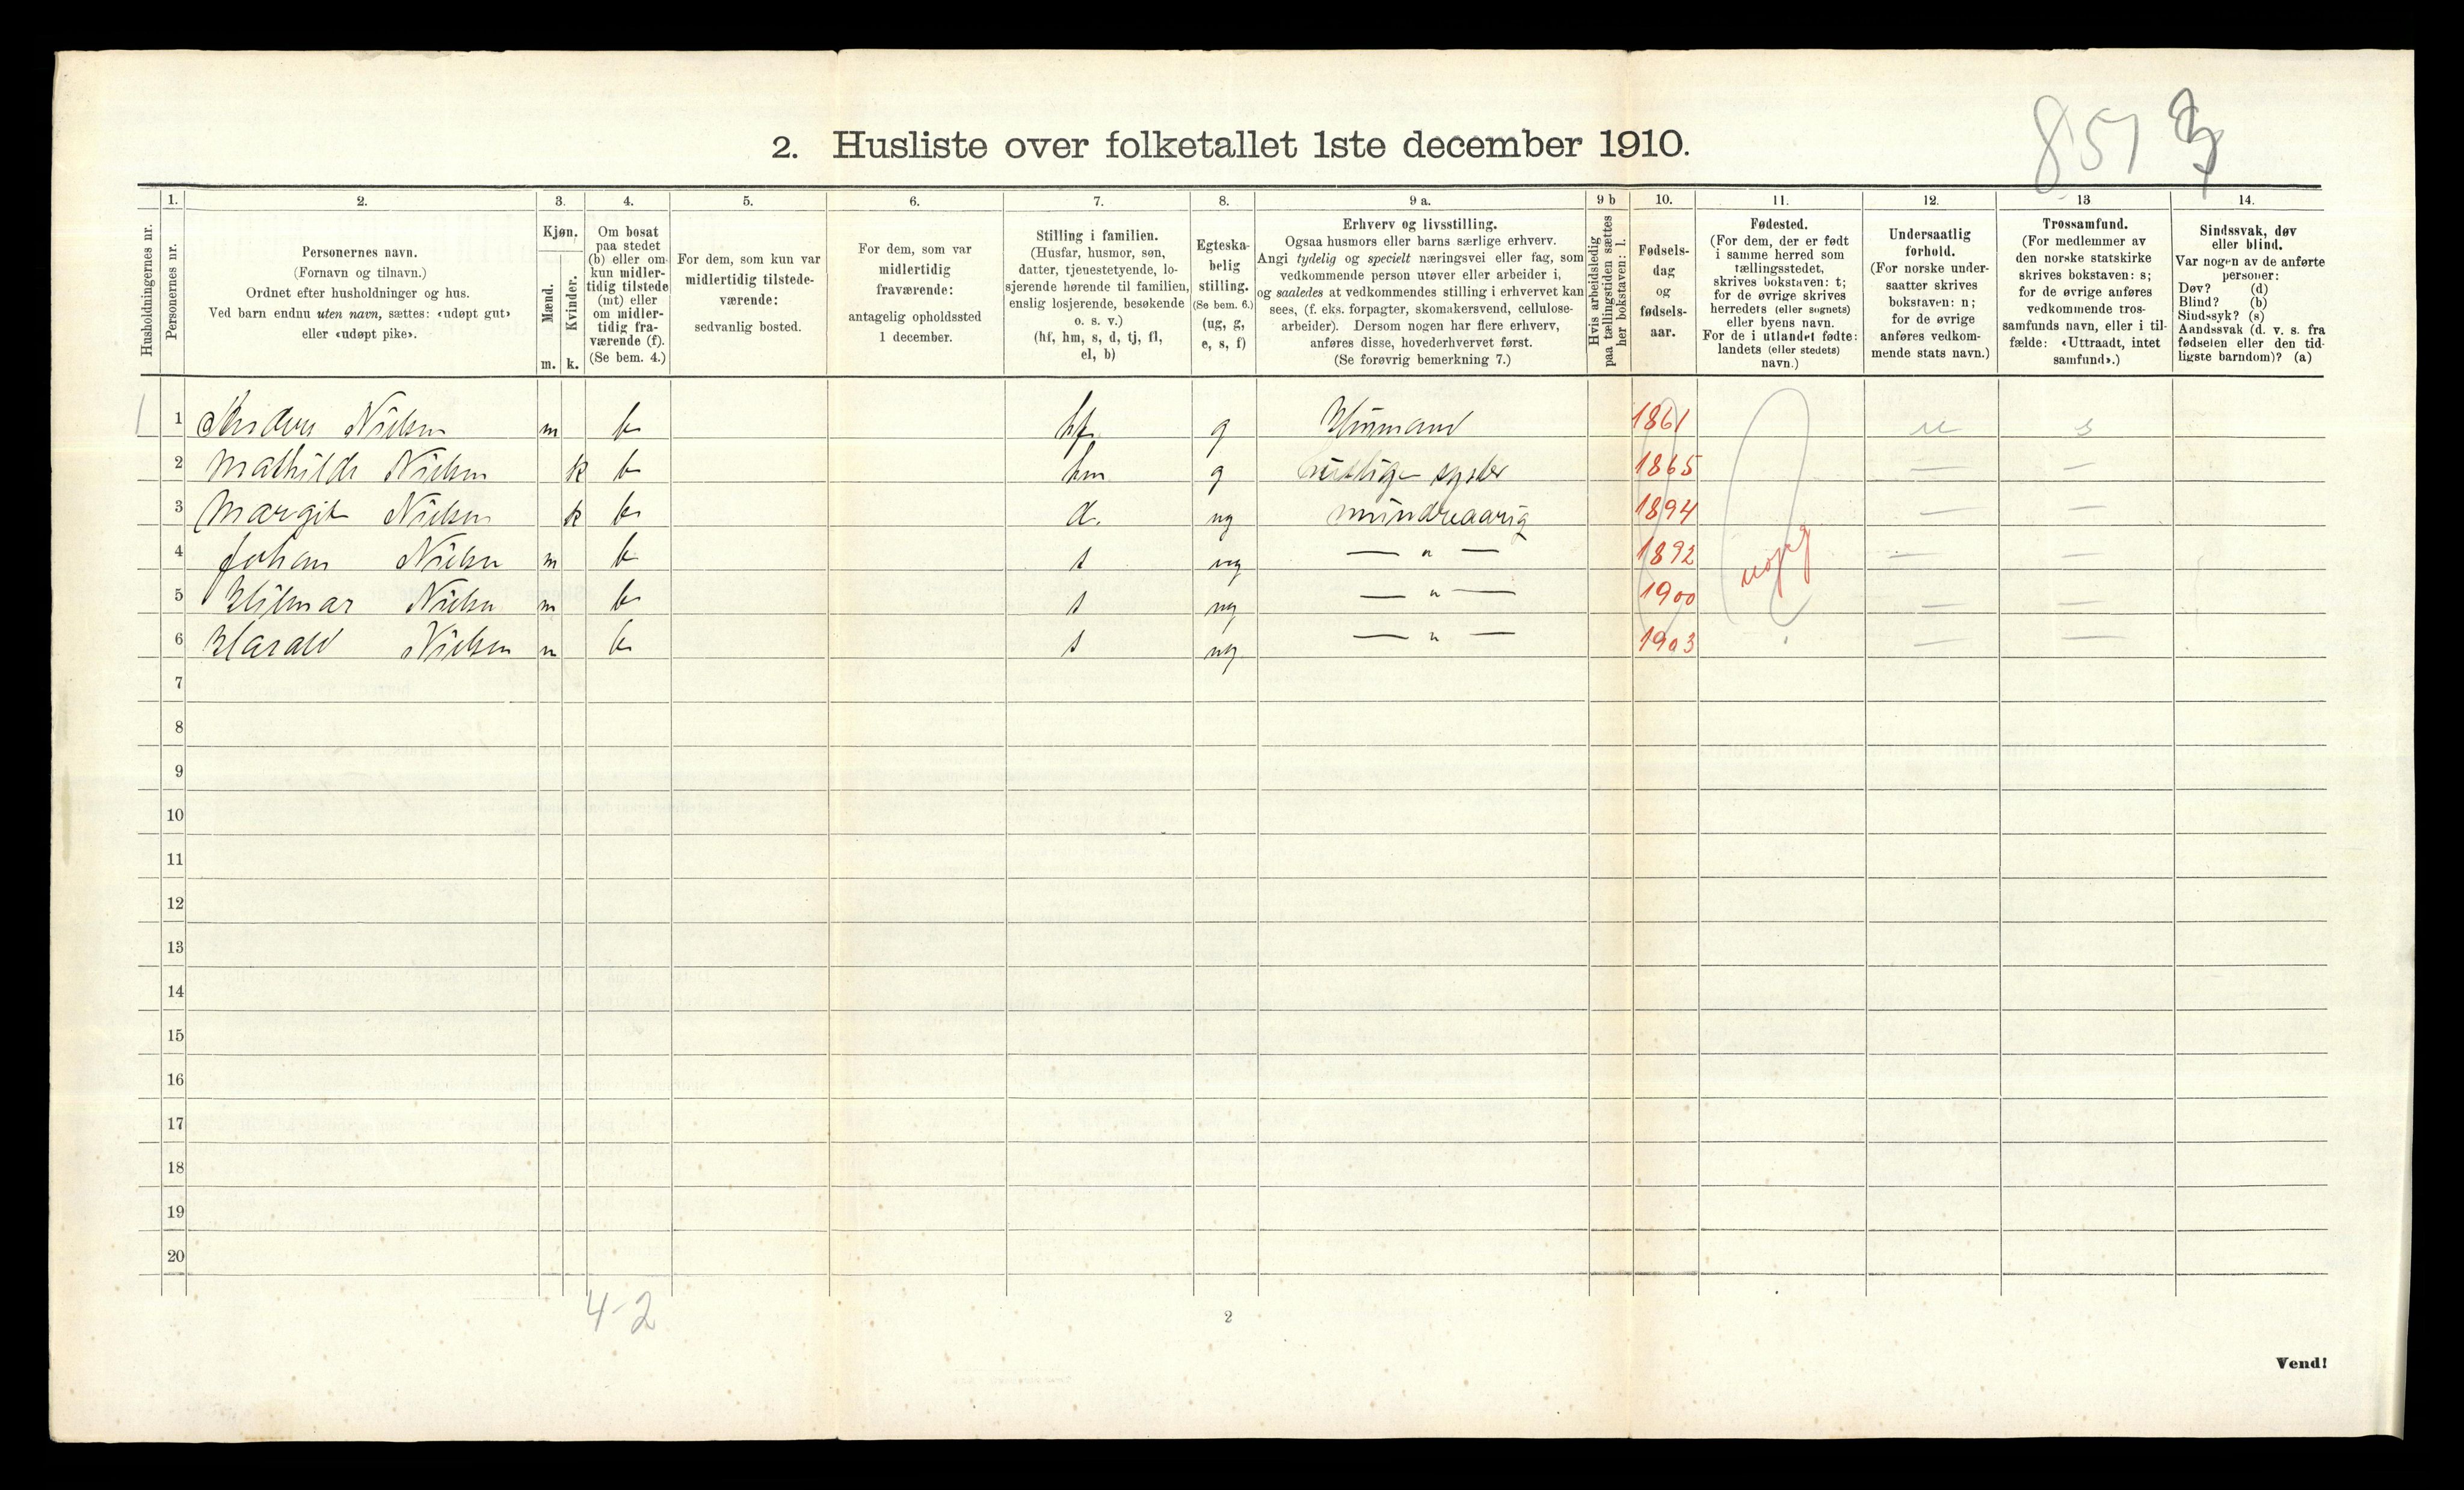 8513
2. Husliste over folketallet 1ste december 1910.
Husholdningernes nr.
1. Personernes nr.
2. Personernes navn. (Fornavn og tilnavn.) Ordnet efter husholdninger og hus. Ved barn endnu uten navn, sættes: «udøpt gut» eller «udøpt pike».
3. Kjøn. Mænd. m. Kvinder. k.
4. Om bosat paa stedet (b) eller om kun midlertidig tilstede (mt) eller om midlertidig fraværende (f). (Se bem. 4.)
5. For dem, som kun var midlertidig tilstedeværende: sedvanlig bosted.
6. For dem, som var midlertidig fraværende: antagelig opholdssted 1 december.
7. Stilling i familien. (Husfar, husmor, søn, datter, tjenestetyende, losjerende hørende til familien, enslig losjerende, besøkende o. s. v.) (hf, hm, s, d, tj, fl, el, b)
8. Egteskabelig stilling. (Se bem. 6.) (ug, g, e, s, f)
9 a. Erhverv og livsstilling. Ogsaa husmors eller barns særlige erhverv. Angi tydelig og specielt næringsvei eller fag, som vedkommende person utøver eller arbeider i, og saaledes at vedkommendes stilling i erhvervet kan sees, (f. eks. forpagter, skomakersvend, cellulosearbeider). Dersom nogen har flere erhverv, anføres disse, hovederhvervet først. (Se forøvrig bemerkning 7.)
9 b Hvis arbeidsledig paa tællingstiden sættes her bokstaven: l.
10. Fødselsdag og fødselsaar.
11. Fødested. (For dem, der er født i samme herred som tællingsstedet, skrives bokstaven: t; for de øvrige skrives herredets (eller sognets) eller byens navn. For de i utlandet fødte: landets (eller stedets) navn.)
12. Undersaatlig forhold. (For norske undersaatter skrives bokstaven: n; for de øvrige anføres vedkommende stats navn.)
13 Trossamfund. (For medlemmer av den norske statskirke skrives bokstaven: s; for de øvrige anføres vedkommende trossamfunds navn, eller i tilfælde: «Uttraadt, intet samfund».)
14. Sindssvak, døv eller blind. Var nogen av de anførte personer: Døv? (d) Blind? (b) Sindssyk? (s) Aandssvak (d. v. s. fra fødselen eller den tidligste barndom)? (a)
1 1 Anders Nielsen m b hf g Husmand 1861 n s
2 Mathilde Nielsen k b hm g syster 1865 — —
3 Margit Nielsen k b d. ug mindreaarig 1894 — —
4 Johan Nielsen m b s ug — " — 1892 — —
5 Hilmar Nielsen m b s ug — " — 1900 — —
6 Harald Nielsen m b s ug — " — 1903 — —
7
8
9
10
11
12
13
14
15
16
17
18
19
20
4-2
2
Vend!